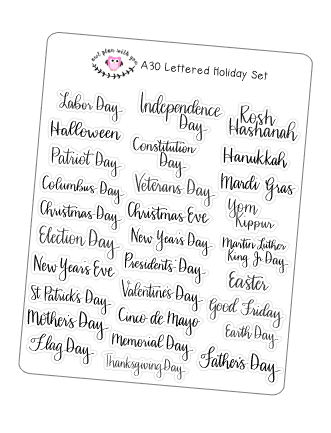 owl plan with you
A30 Lettered Holiday Set
Labor Day
Halloween
Patriot Day
Columbus Day
Christmas Day
Election Day
New Year's Eve
St Patrick's Day
Mother's Day
Flag Day
Independence
Day
Constitution
Day
Veterans Day
Christmas Eve
New Year's Day
Presidents Day
Valentine's Day
Cinco de Mayo
Memorial Day
Thanksgiving Day
Rosh
Hashanah
Hanukkah
Mardi Gras
Yom
Kippur
Martin Luther
King Jr Day
Easter
Good Friday
Earth Day
Father's Day